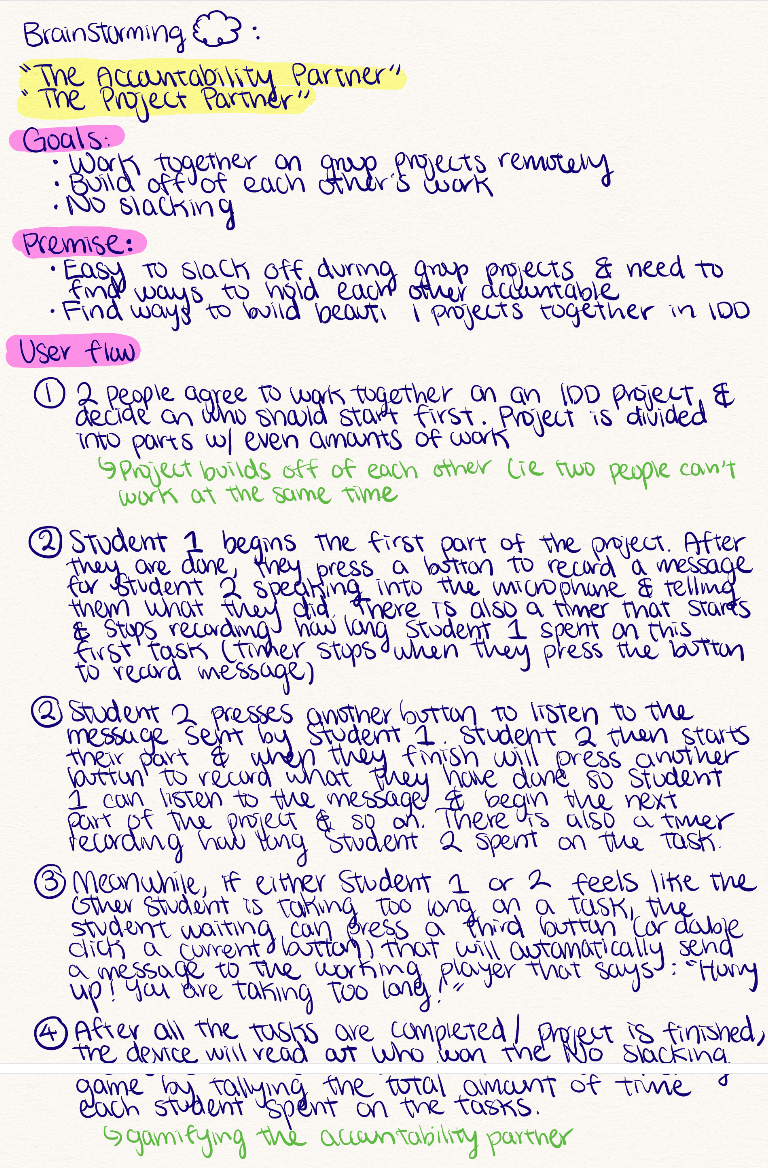 Brainstorming :
"The Accountability Partner"
"The Project Partner"
Goals:
• Work together on group projects remotely
• Build off of each other's work
• No slacking
Premise:
• Easy to slack off during group projects & need to
find ways to hold each other accountable
• Find ways to build beauti l projects together in IDD
User flow
① 2 people agree to work together on an IDD project, &
decide on who should start first. Project is divided
into parts w/ even amounts of work
↳ Project builds off of each other (ie two people can't
work at the same time
② Student 1 begins the first part of the project. After
they are done, they press a button to record a message
for student 2 speaking into the microphone & telling
them what they did. There is also a timer that starts
& stops recording how long student 1 spent on this
first task (timer stops when they press the button
to record message)
② Student 2 presses another button to listen to the
message sent by student 1. Student 2 then starts
their part & when they finish will press another
button to record what they have done so student
1 can listen to the message & begin the next
part of the project & so on. There is also a timer
recording how long student 2 spent on the task.
③ Meanwhile, if either student 1 or 2 feels like the
other student is taking too long on a task, the
student waiting can press a third button (or double
click a current button) that will automatically send
a message to the working player that says: "Hurry
up! You are taking too long!"
④ After all the tasks are completed / project is finished,
the device will read out who won the No Slacking
game by tallying the total amount of time
each student spent on the tasks.
↳ gamifying the accountability partner